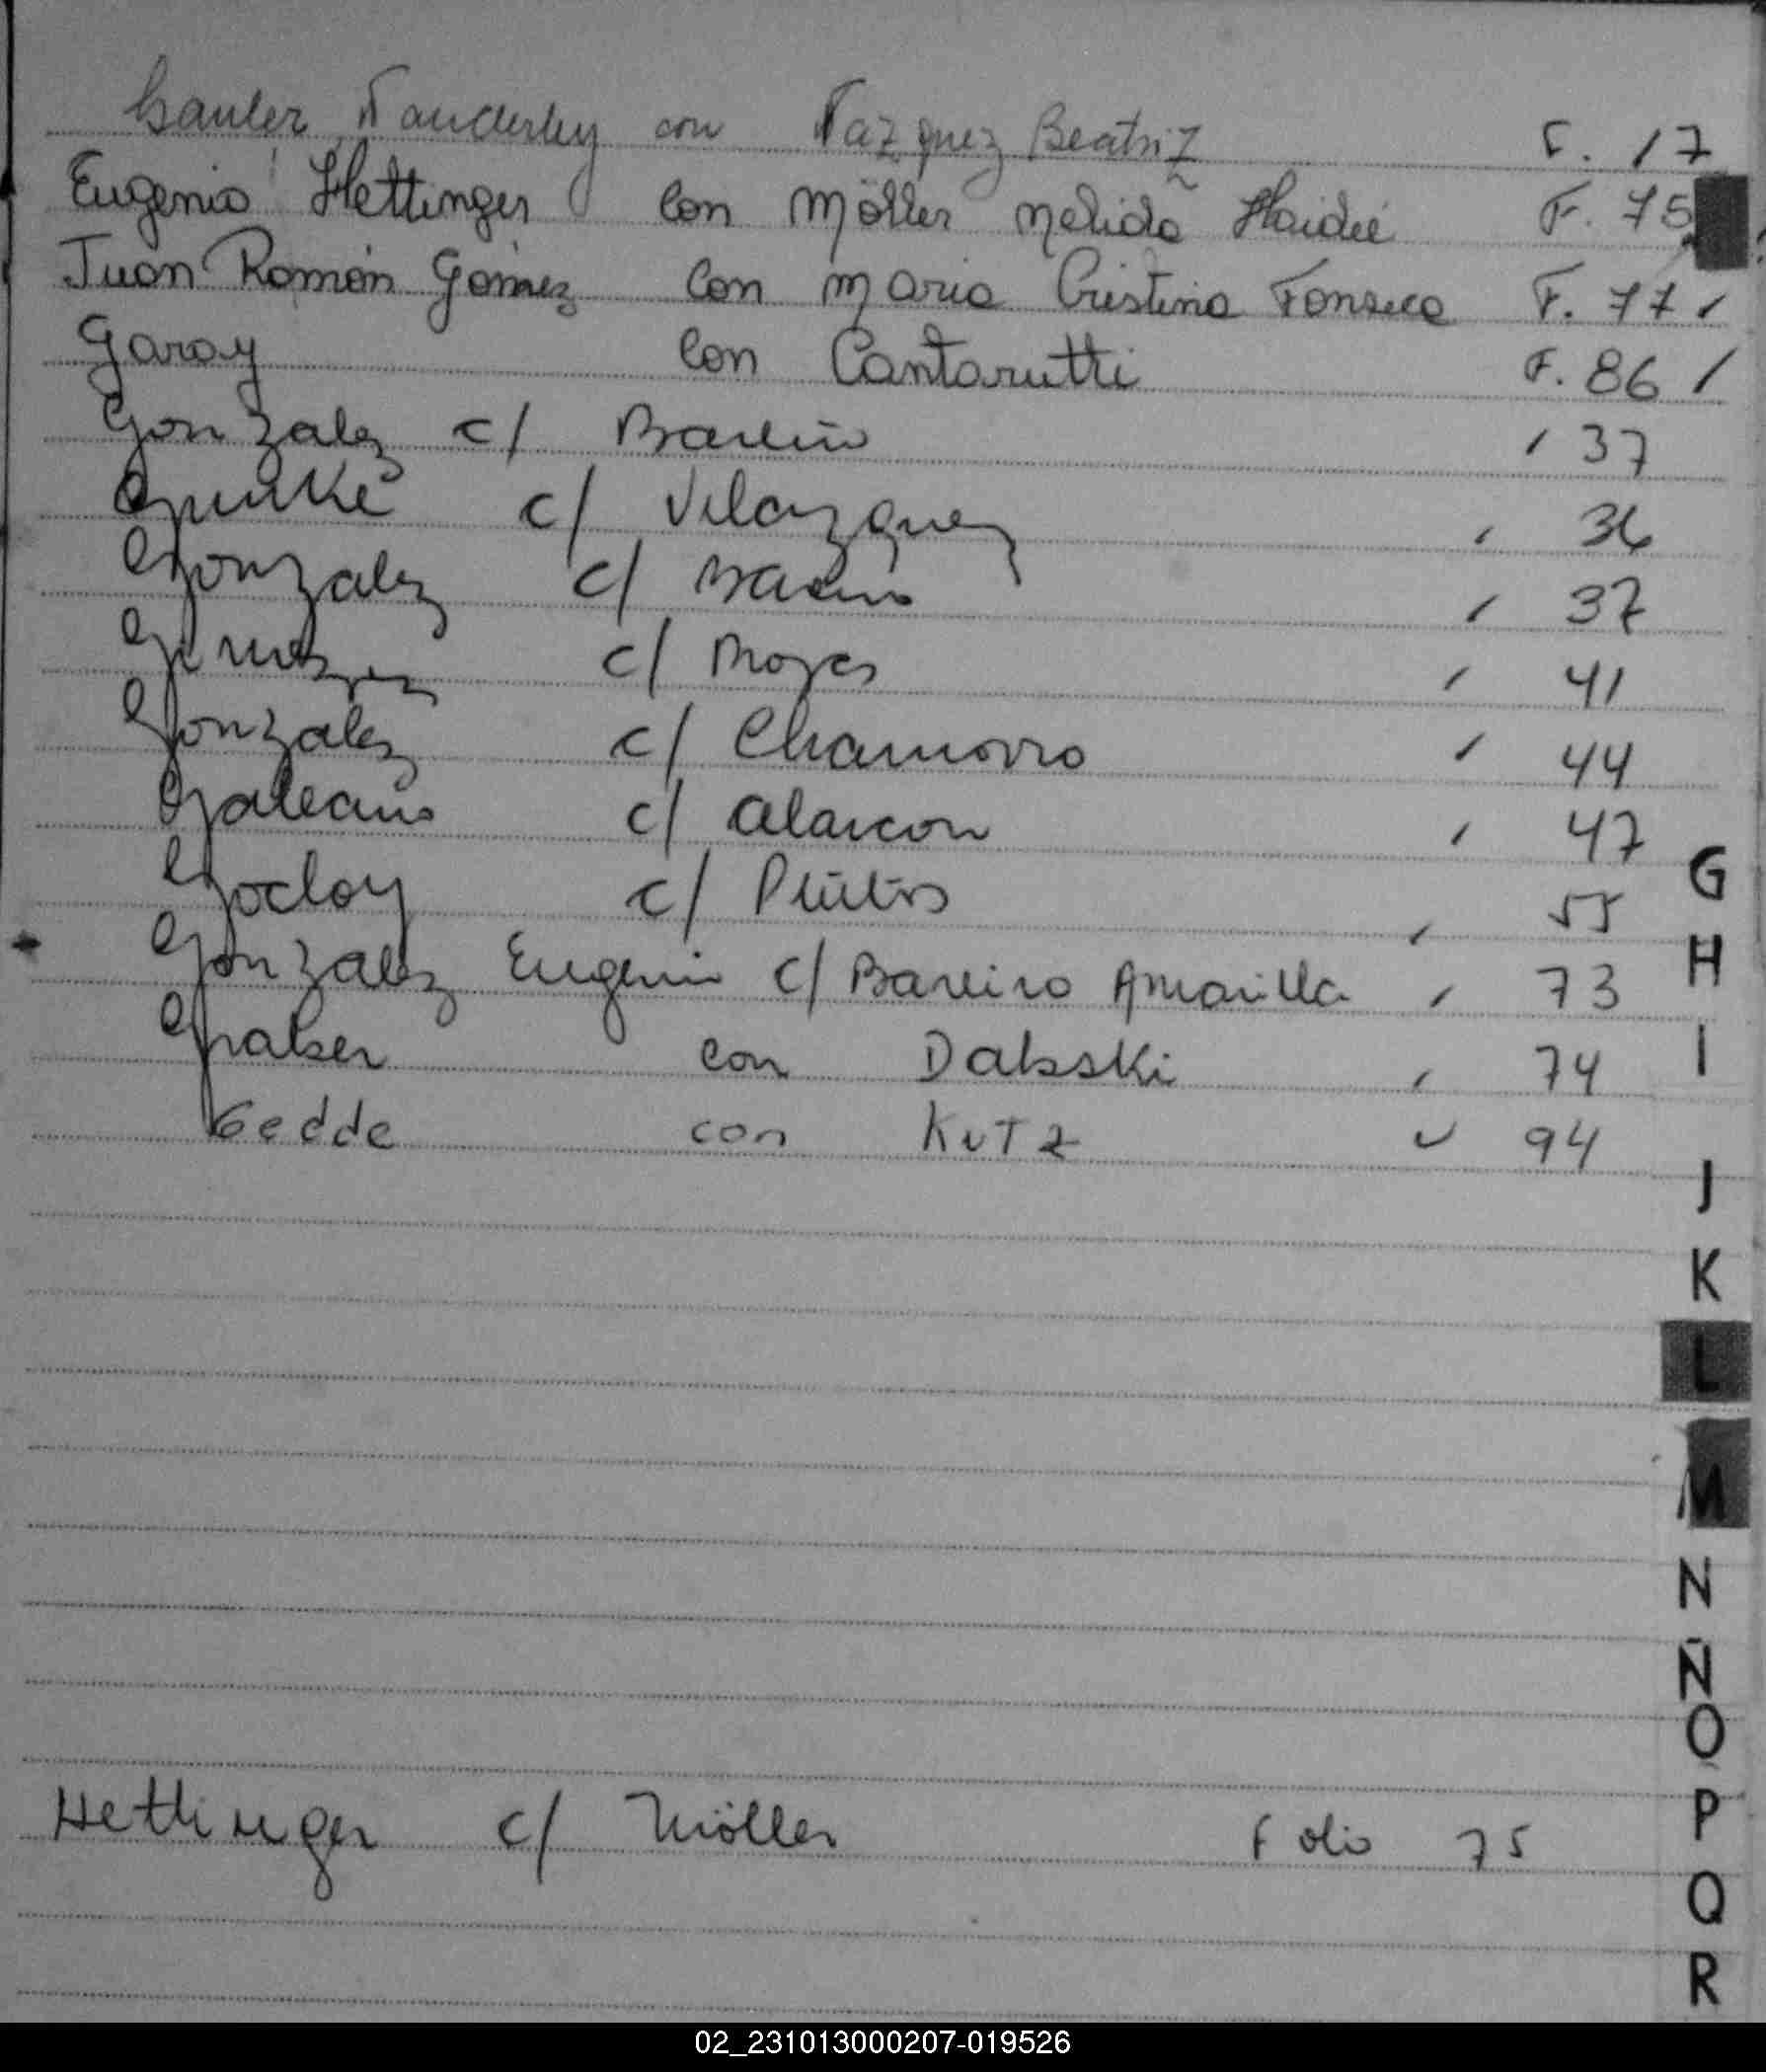 Vanderley con Vazquez Beatriz F. 17
Eugenio Hettinger con Möller Nelida Haideé F. 75
Juan Ramón Gómez Con Maria Cristina Fonseca F. 77 /
Garay Con Cantarutti F. 86 /
Gonzalez c/ Bareiro / 37
c/ Velazquez / 36
Gonzalez c/ / 37
c/ / 41
Gonzalez c/ Chamorro / 44
Galeano c/ Alarcon / 47
Godoy c/ / 55
Gonzalez Eugenio c/ Bareiro Amarilla / 73
con Dalsski / 74
Gedde con KUTZ 94
Hettinger c/ Möller Folio 75
G
H
I
J
K
L
M
N
Ñ
O
P
Q
R
02_231013000207-019526